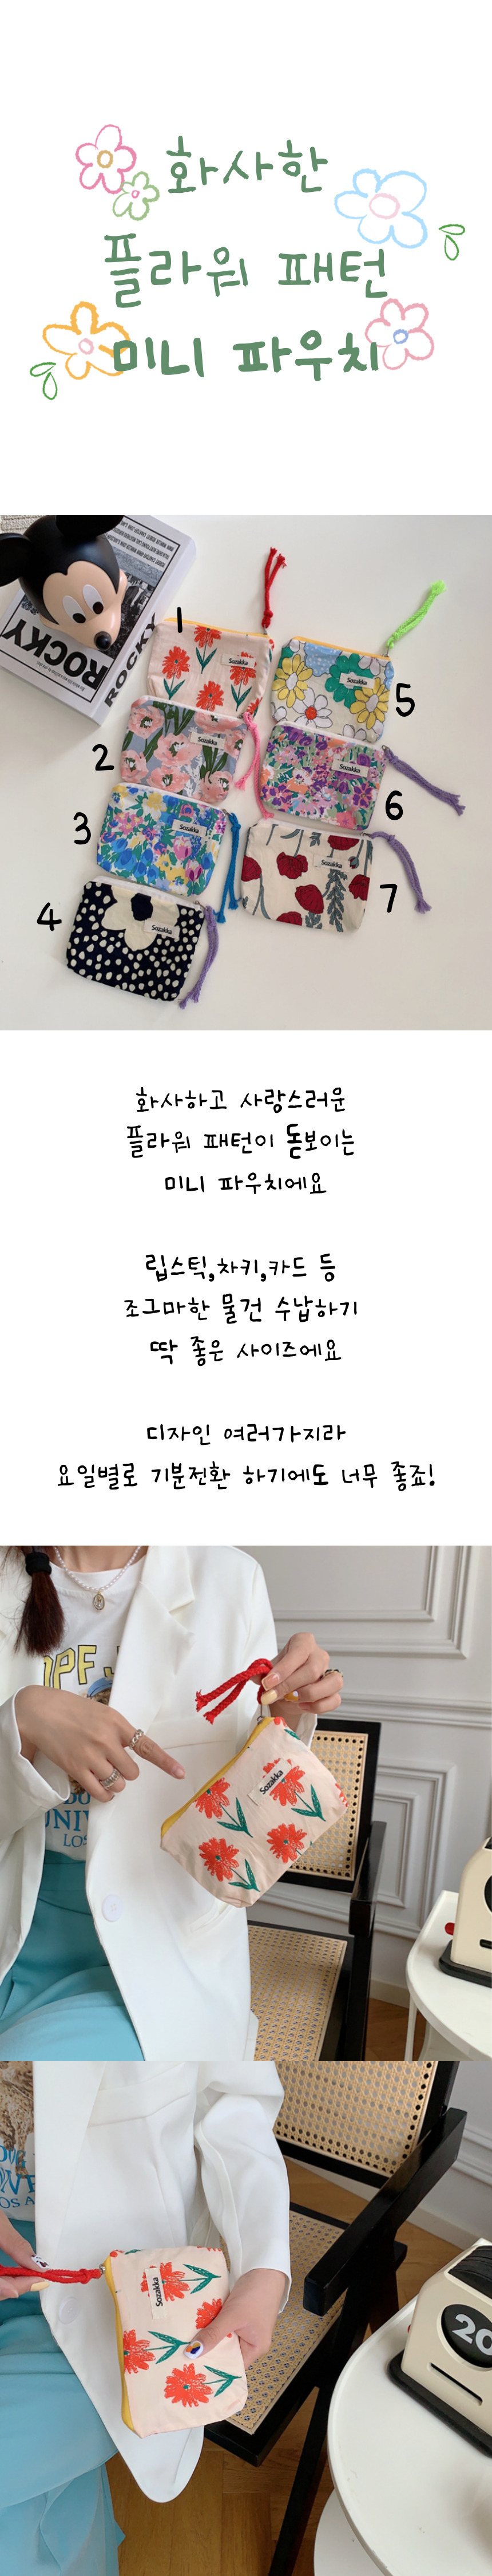 화사한
플라워 패턴
미니 파우치
ROCKY
ROCKY
1
Sozakka
Sozakka
5
2
Sozakka
Sozakka
6
3
Sozakka
Sozakka
7
4
Sozakka
화사하고 사랑스러운
플라워 패턴이 돋보이는
미니 파우치에요
립스틱,차키,카드 등
조그마한 물건 수납하기
딱 좋은 사이즈에요
디자인 여러가지라
요일별로 기분전환 하기에도 너무 좋죠!
Sozakka
Sozakka
20